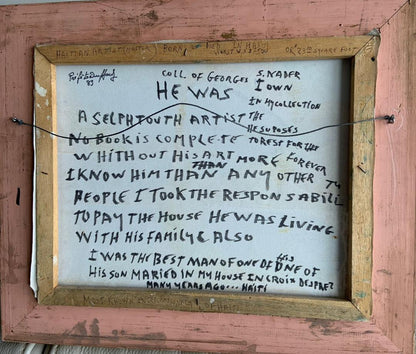 HAITIAN ART MASTER BORN DIED IN HAITI
OR 23 SQUARE FOOT
83
COLL. OF GEORGES S. NADER
HE WAS I OWN
IN MY COLLECTION
A SELPHTOUTH ARTIST THE
HE SUPOSES
NO BOOK IS COMPLETE TO REST FOR THE
WHITHOUT HIS ART MORE FOREVER
THAN
I KNOW HIM THAN ANY OTHER
PEOPLE I TOOK THE RESPONSABILI TY
TO PAY THE HOUSE HE WAS LIVING.
WITH HIS FAMILY & ALSO
I WAS THE BEST MAN OF ONE OF HIS ONE OF
HIS SON MARIED IN MY HOUSE IN CROIX DESPREZ
MANY YEARS AGO... HAITI
MOST KNOWN